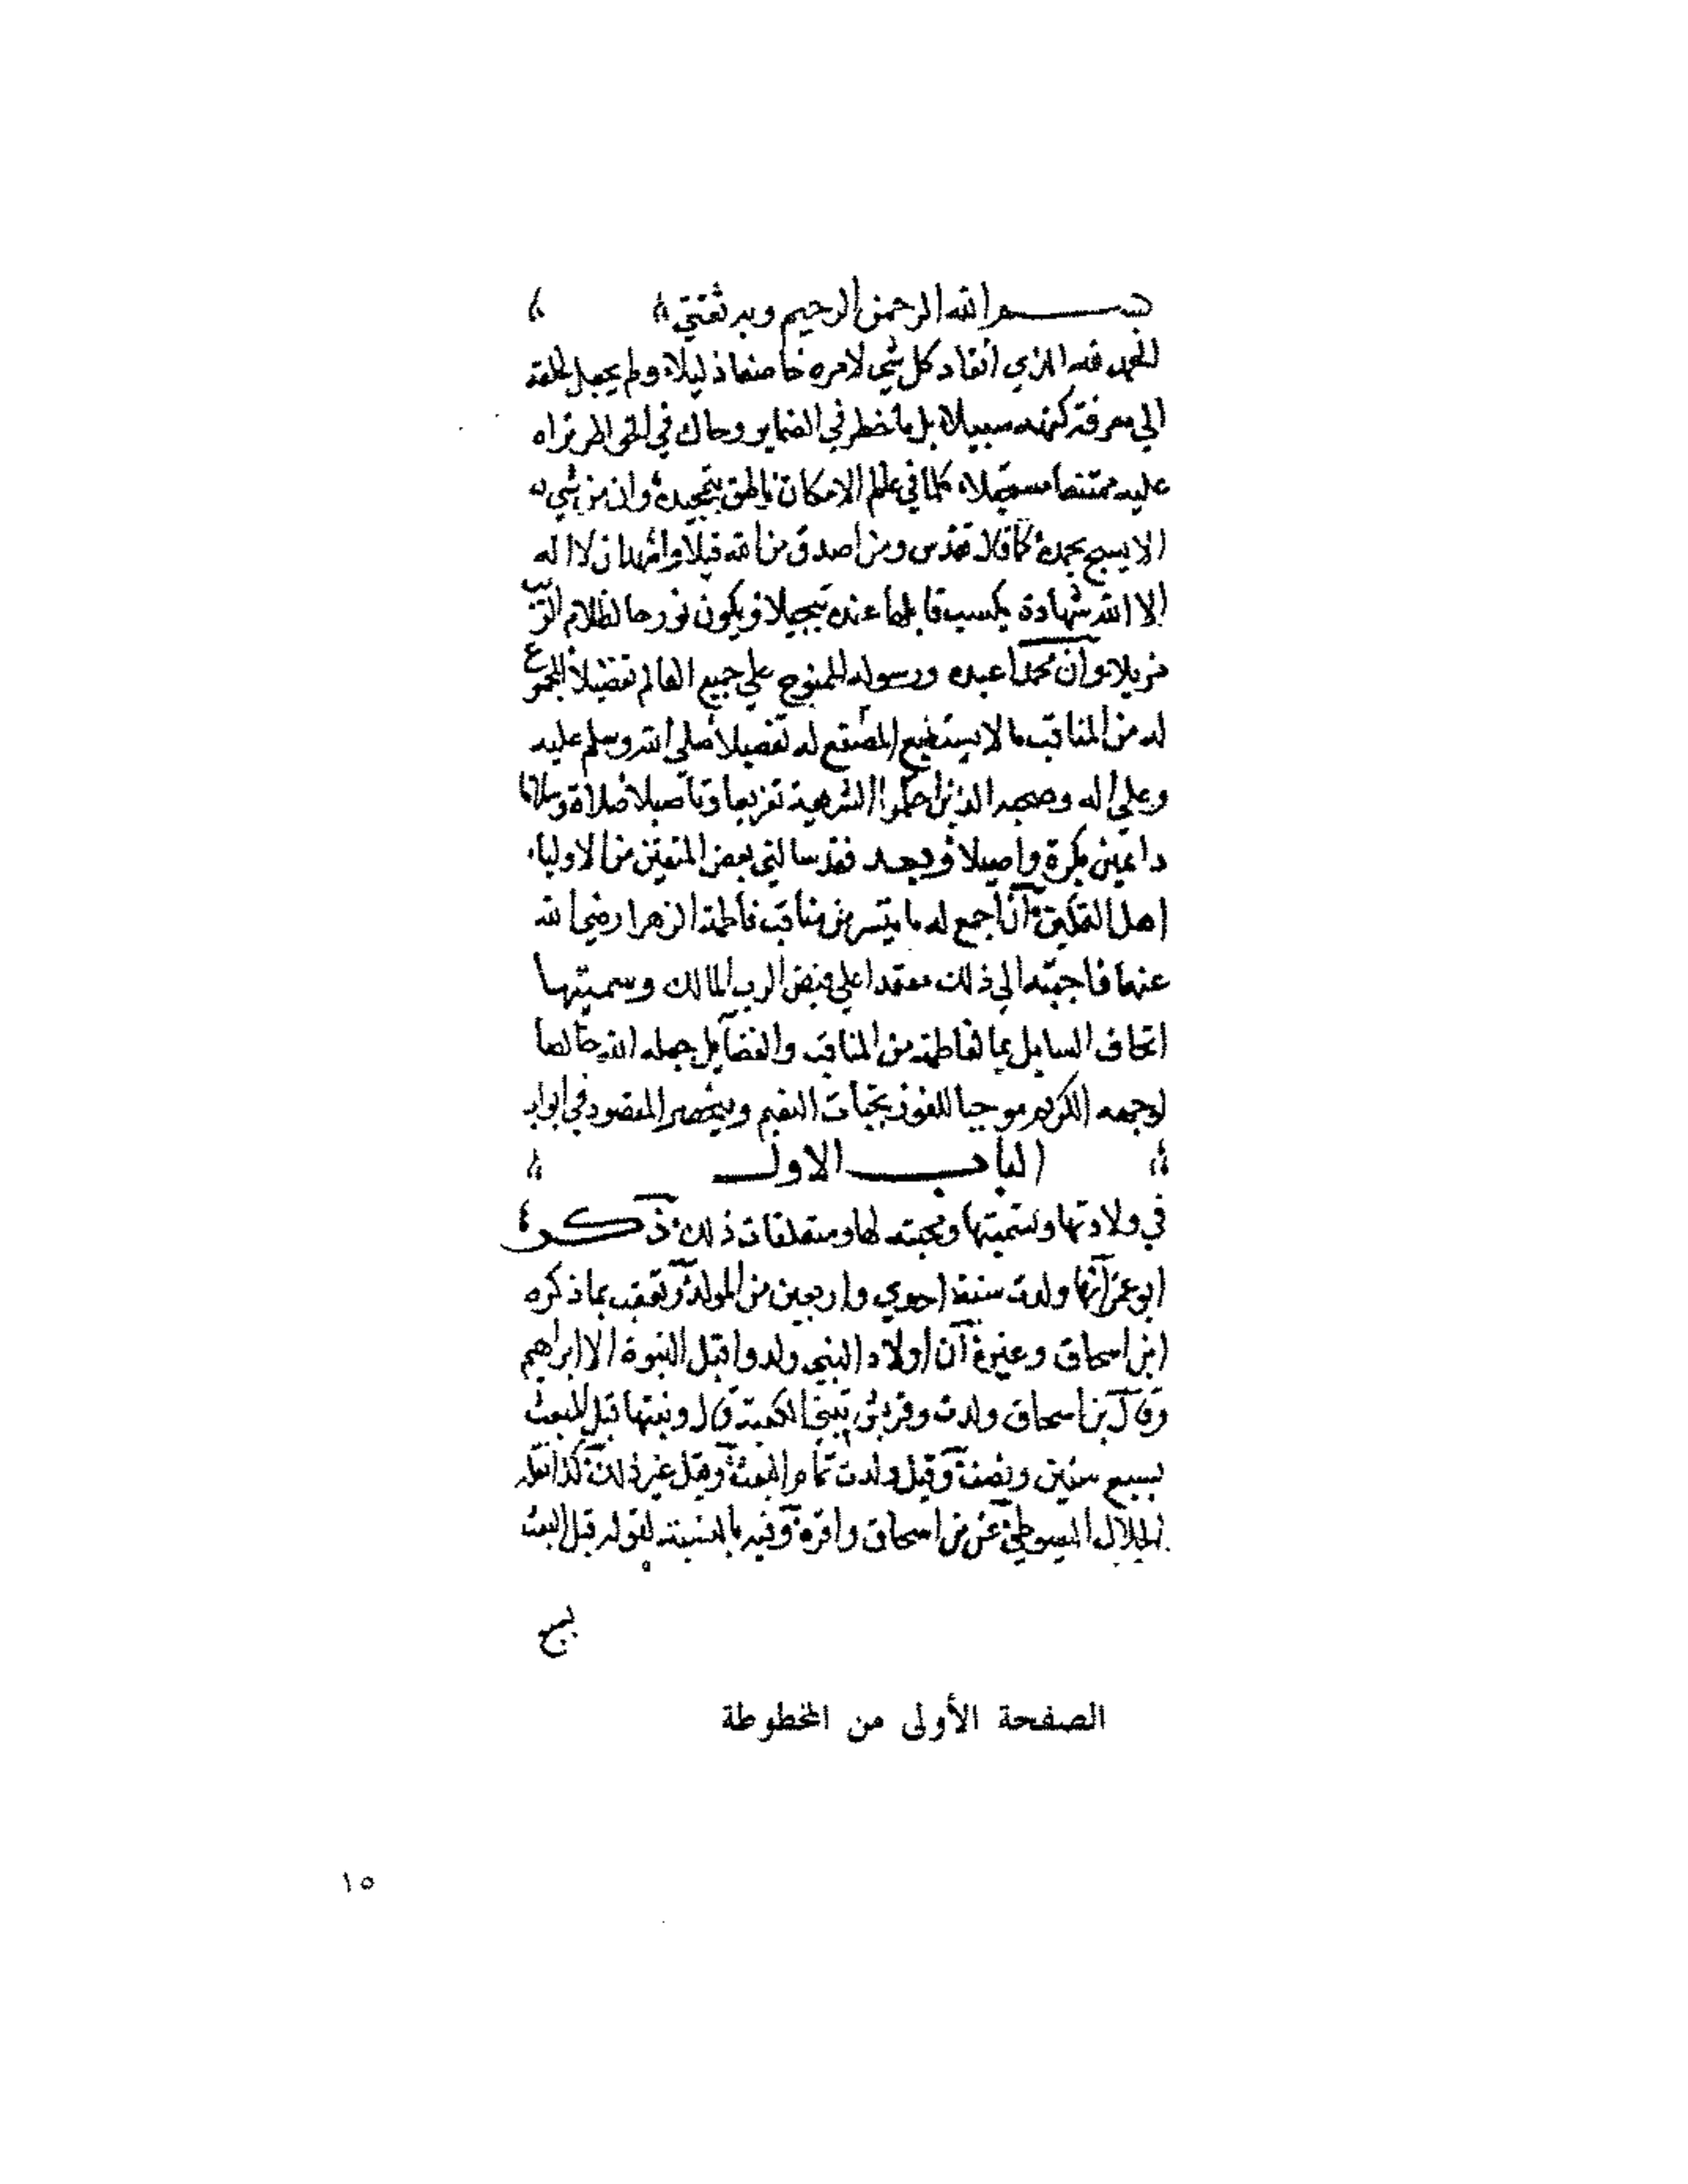 بسم الله الرحمن الرحيم وبه ثقتي
الحمد لله الذي انقاد كل شي لامره خاضعا ذليلا ولم يجعل لخلقه
الي معرفة كنهه سبيلا بل ما خطر في الضماير وحاك في الخواطر تراه
عليه ممتنعا مستحيلا كلما في عالم الامكان ناطق بتمجيده وان من شي
الا يسبح بحمده كما قال تقدس ومن اصدق من الله قيلا واشهد ان لا اله
الا الله شهادة يكسب قايلها عنده تبجيلا ويكون نورها لظلام الترب
مزيلا وان محمدا عبده ورسوله الممنوح علي جميع العالم تفضيلا المجموع
له من المناقب ما لا يستطيع المصقع له تفصيلا صلي الله وسلم عليه
وعلي اله وصحبه الذين احكموا الشرعية تفريعا وتاصيلا صلاة وسلاما
دايمين بكرة واصيلا وبعد فقد سالني بعض المتقين من الاولياء
اهل التمكين ان اجمع له ما يتسر من مناقب فاطمة الزهرا رضي الله
عنها فاجبته الي ذلك معتمدا علي فيض الرب المالك وسميتها
اتحاف السايل بما لفاطمة من المناقب والفضايل جعله الله خالصا
لوجهه الكريم موجبا للفوز بجنات النعيم وينحصر المقصود في ابواب
الباب الاول
في ولادتها وتسميتها ومحبته لها ومتعلقات ذلك ذكر
ابو عمر انها ولدت سنة احدي واربعين من المولد وتعقب بما ذكره
ابن اسحاق وغيره ان اولاد النبي ولدوا قبل النبوة الا ابراهيم
وقال بن اسحاق ولدت وقريش تبني الكعبة قال وبنيتها قبل المبعث
بسبع سنين ونصف وقيل ولدت عام المبعث وقيل غير ذلك كذا نقله
الجلال السيوطي عن بن اسحاق واقره وفيه بالنسبة لقوله قبل البعث
بسبع
الصفحة الأولى من المخطوطة
١٥